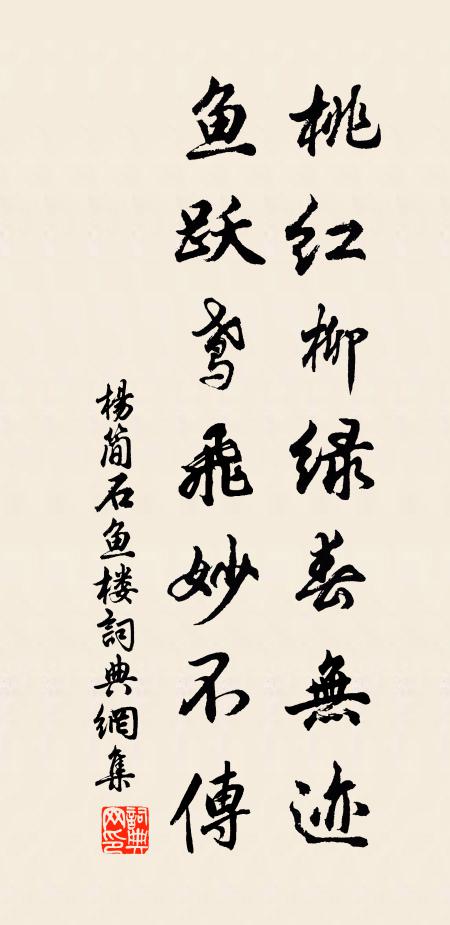 桃红柳绿春無迹
鱼跃鸢飛妙不傳
楊简石鱼楼詞典網集
詞典网印